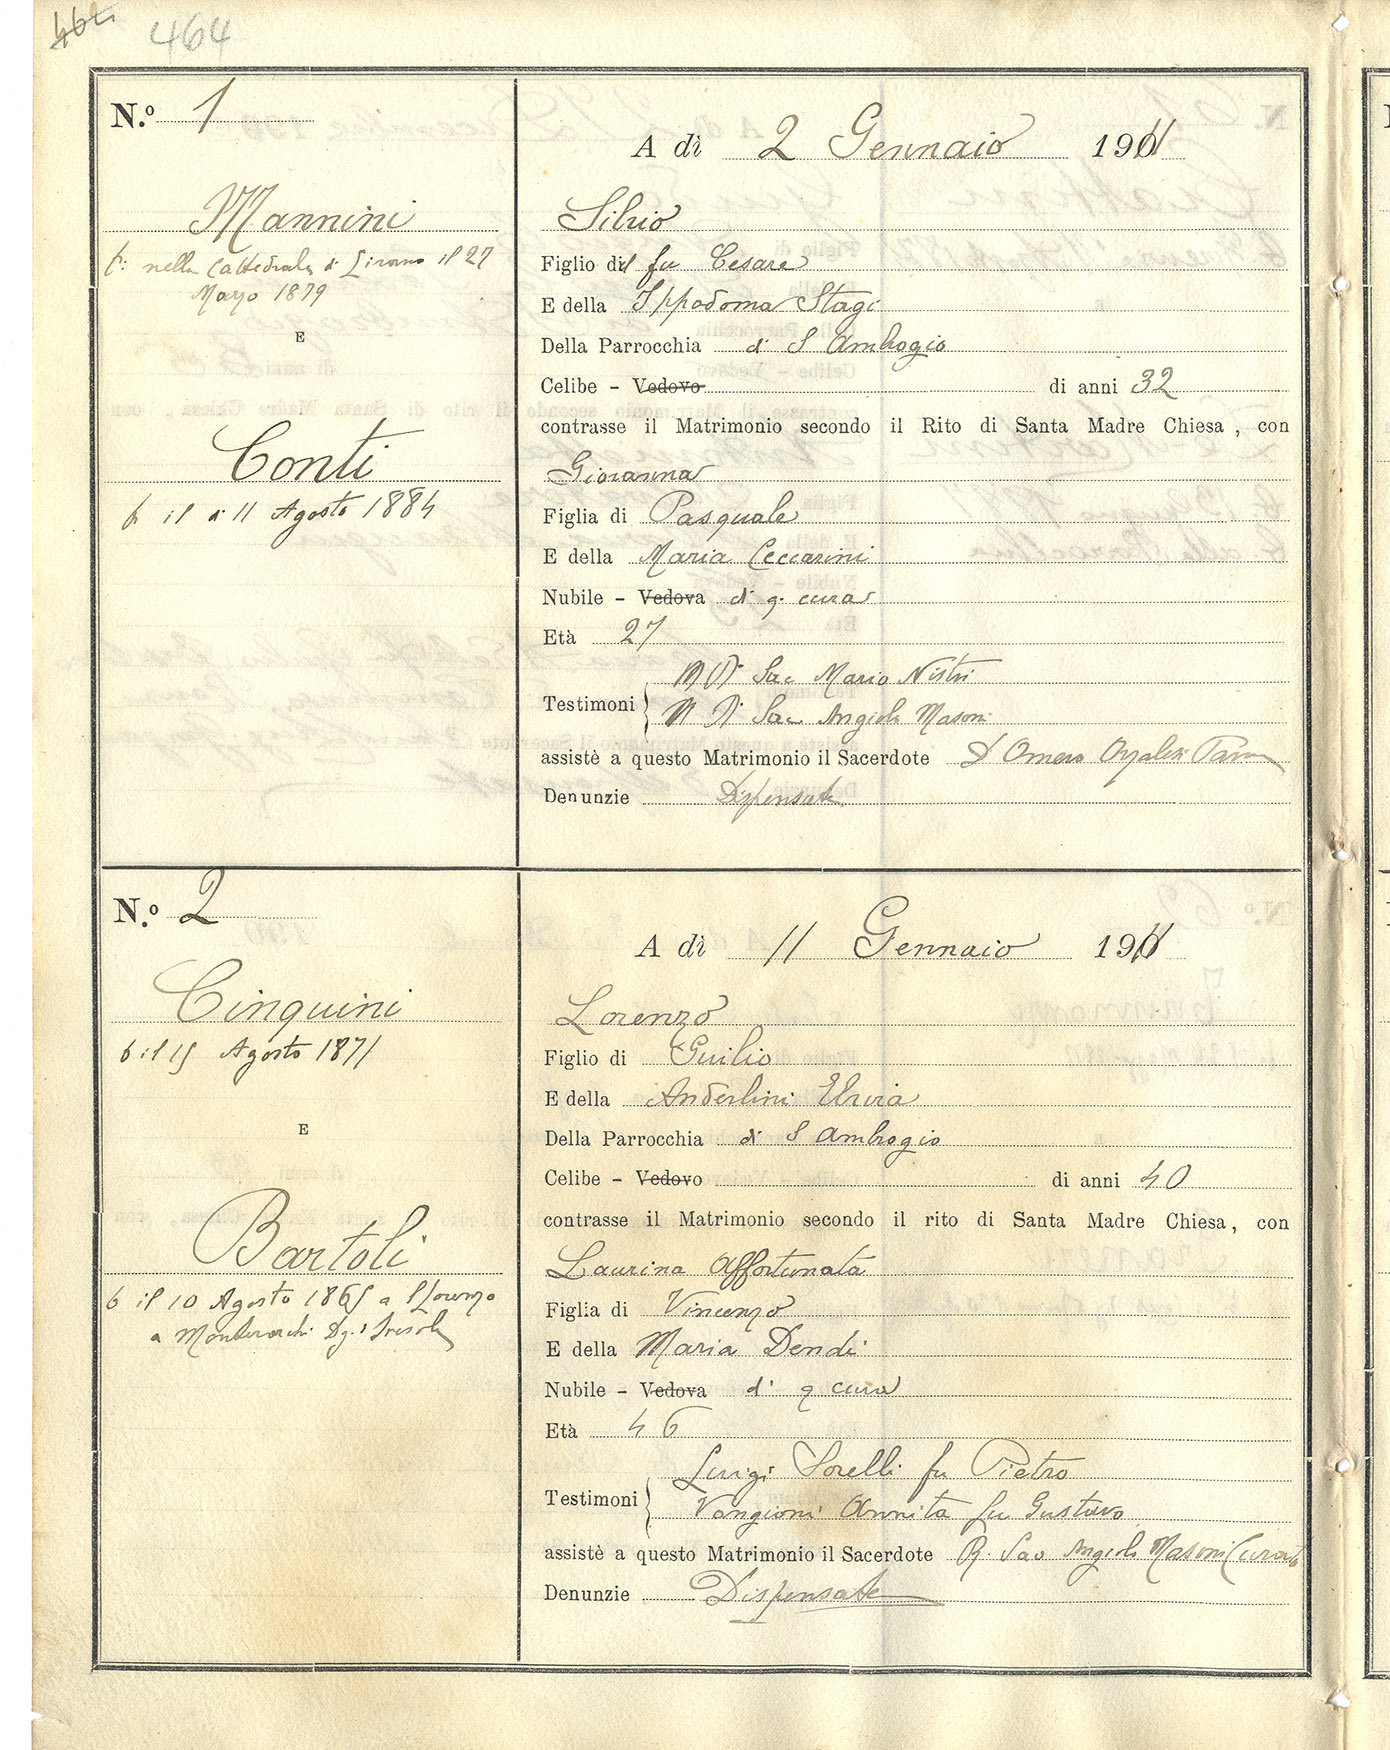 464
N.º 1
A dì 2 Gennaio 1911
Mannini
b: nella Cattedrale di il 27
Marzo 1879
E
Conti
b il dì 11 Agosto 1884
Silvio
Figlio del fu Cesare
E della Ippodoma Stagi
Della Parrocchia di S Ambrogio
Celibe - Vedovo di anni 32
contrasse il Matrimonio secondo il Rito di Santa Madre Chiesa, con
Giovanna
Figlia di Pasquale
E della Maria Ceccarini
Nubile - Vedova di q. cura
Età 27
Testimoni
M R Sac Mario Nistri
M R Sac Angiolo Masoni
assistè a questo Matrimonio il Sacerdote D Omero
Denunzie Dispensate
N.º 2
A dì 11 Gennaio 1911
Cinquini
b il 15 Agosto 1871
E
Bartoli
b il 10 Agosto 1865 a S Lorenzo
a Montevarchi
Lorenzo
Figlio di Guilio
E della Anderlini Elvira
Della Parrocchia di S Ambrogio
Celibe - Vedovo di anni 40
contrasse il Matrimonio secondo il rito di Santa Madre Chiesa, con
Laurina Affortunata
Figlia di Vincenzo
E della Maria Dendi
Nubile - Vedova di q cura
Età 46
Testimoni
Luigi Sorelli fu Pietro
Vangioni Annita fu Gustavo
assistè a questo Matrimonio il Sacerdote R. Sac Angiolo Masoni Curato
Denunzie Dispensate